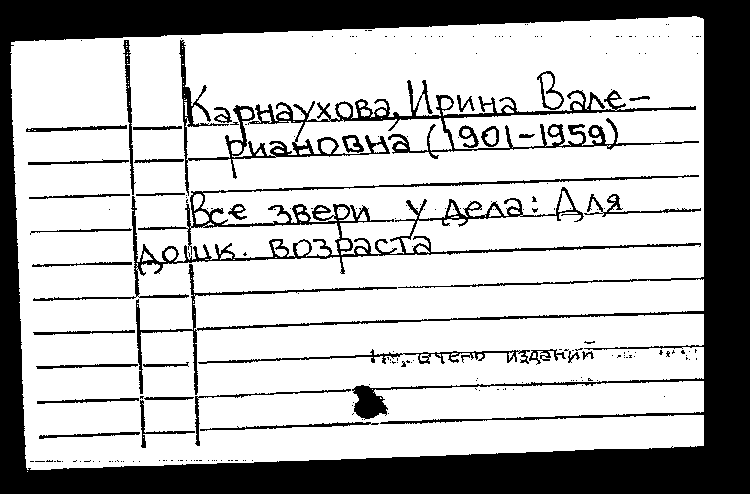 Карнаухова, Ирина Вале-
риановна (1901-1959)
Все звери у дела: Для
дошк. возраста
Перечень изданий